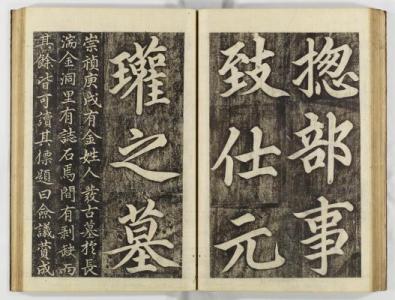 揔部事
致仕元
瓘之墓
崇禎庚戌有金姓人發古墓於長
湍金洞里有誌石焉間有剝缺而
其餘皆可讀其標題曰僉議贊成